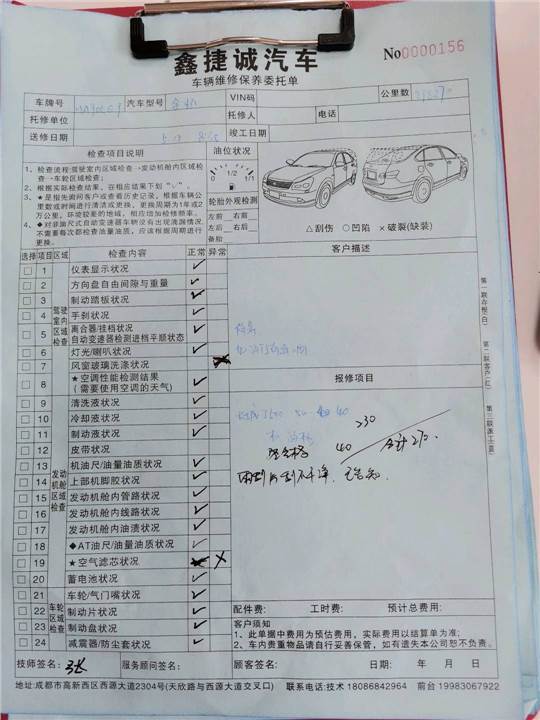 鑫捷诚汽车
No0000156
车辆维修保养委托单
车牌号
汽车型号
VIN码
公里数
托修单位
托修人
电话
送修日期
竣工日期
检查项目说明
油位状况
1、检查流程:驾驶室内区域检查→发动机舱内区域检
查→车轮区域检查;
2、根据实际检查结果，在相应结果下划"√"。
3、★是指先询问客户或查看历史记录，根据车辆公
里数或时间进行清洁或更换，更换周期为1年或2
万公里，环境较差的地域，相应增加检修频率。
4、◆对非抽尺式自动变速器车辆没有出现泄漏情况，
不需要每次都检查油量油质，应该根据周期进行
更换。
0 1/2 1/1
轮胎外观检测
左前 右前
左后 右后
备胎
△刮伤 ○凹陷 ×破裂(缺装)
选择 项目 区域 检查内容 正常 异常
客户描述
驾驶室内区域检查
1 仪表显示状况 ✓
2 方向盘自由间隙与重量 ✓
3 制动踏板状况 ✓
4 手刹状况 ✓
5 离合器/挂档状况
自动变速器检测进档平顺状态 ✓
6 灯光/喇叭状况 ✓
7 风窗玻璃洗涤状况
8 ★空调性能检测结果
(需要使用空调的天气) ✓
报修项目
发动机舱区域检查
9 清洗液状况 ✓
10 冷却液状况 ✓
11 制动液状况 ✓
12 皮带状况 ✓
13 机油尺/油量油质状况 ✓
14 上部机脚胶状况 ✓
15 发动机舱内管路状况 ✓
16 发动机舱内线路状况 ✓
17 发动机舱内油渍状况 ✓
18 ◆AT油尺/油量油质状况 ✓
19 ★空气滤芯状况 ×
20 蓄电池状况 ✓
车轮区域检查
21 车轮/气门嘴状况 ✓
22 制动片状况 ✓
23 制动盘状况 ✓
24 减震器/防尘套状况 ✓
230
40
合计270.
雨刮片刮不干净，已告知.
第一联存根(白) 第二联客户(红) 第三联派工(蓝)
配件费: 工时费: 预计总费用:
客户须知
1、此单据中费用为预估费用，实际费用以结算单为准;
2、车内贵重物品请自行妥善保管，如有遗失本公司恕不负责。
技师签名:
服务顾问签名:
顾客签名:
日期: 年 月 日
地址:成都市高新西区西源大道2304号(天欣路与西源大道交叉口) 联系电话:技术 18086842964 前台 19983067922